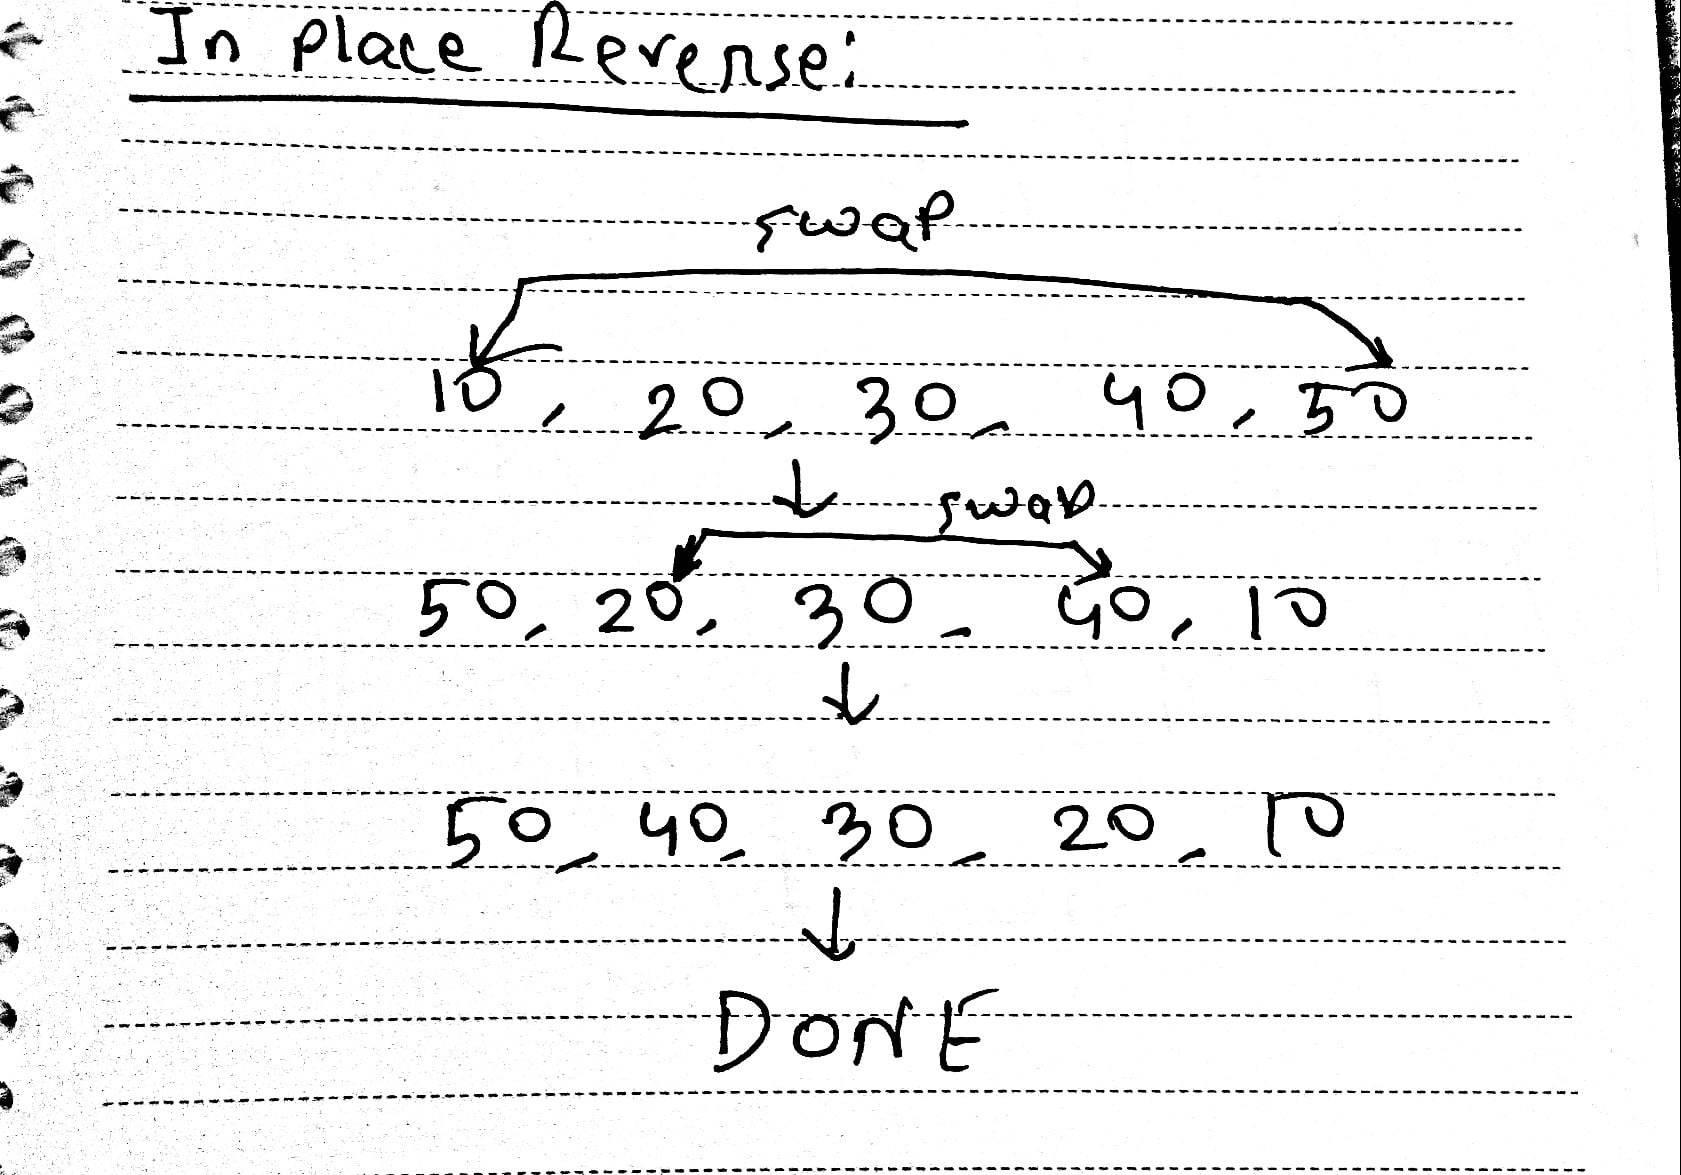 In place Reverse:
swap
10, 20, 30, 40, 50
↓ swap
50, 20, 30, 40, 10
↓
50, 40, 30, 20, 10
↓
DONE